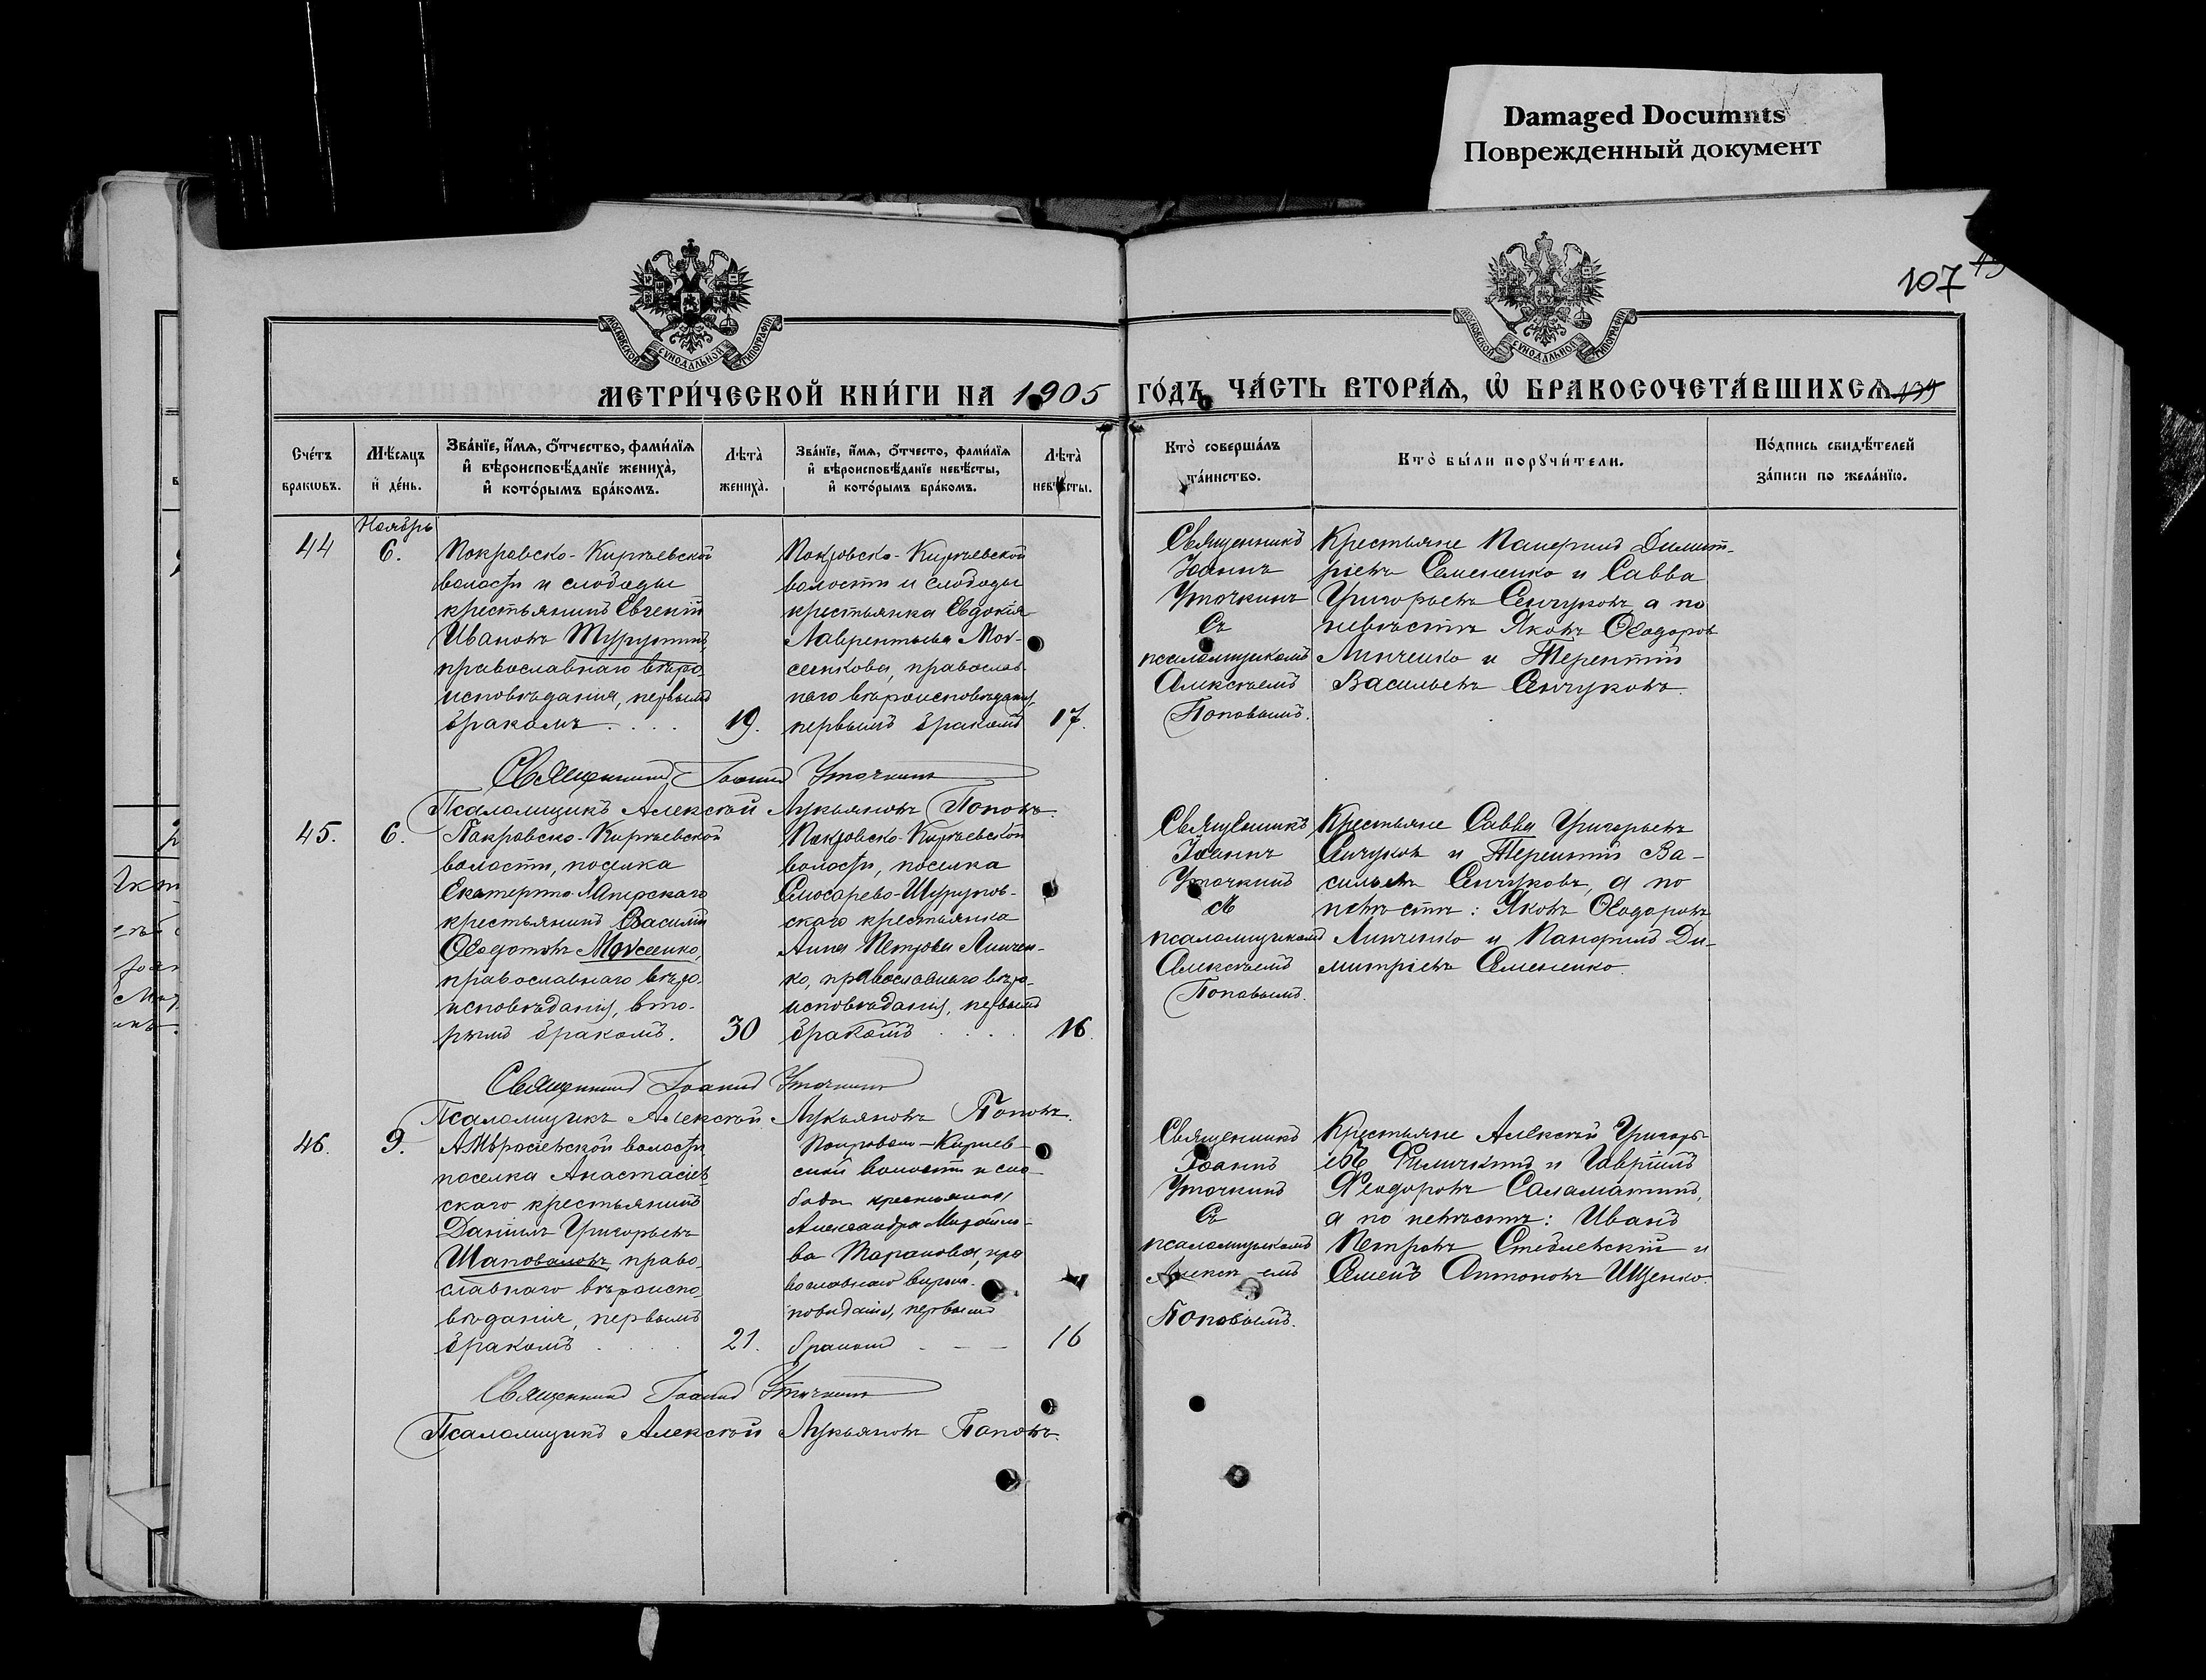 Damaged Documnts
Поврежденный документ
107
МОСКОВСКОЙ СУНОДАЛЬНОЙ ТИПОГРАФІИ
МОСКОВСКОЙ СУНОДАЛЬНОЙ ТИПОГРАФІИ
МЕТРИ́ЧЕСКОЙ КНИ́ГИ НА 1905 ГО́ДЪ, ЧА́СТЬ ВТОРА́Ѧ, Ѡ҆ БРАКОСОЧЕТА́ВШИХСѦ 139
Сче́тъ бракѡвъ.
Мѣ́сѧцъ и҆ де́нь.
Зва́нїе, и҆́мѧ, ѻ҆́тчество, фами́лїѧ и҆ вѣроисповѣ́данїе жениха̀, и҆ кото́рымъ бра́комъ.
Лѣта̀ жениха̀.
Зва́нїе, и҆́мѧ, ѻ҆́тчесто, фами́лїѧ и҆ вѣроисповѣ́данїе невѣ́сты, и҆ кото́рымъ бра́комъ.
Лѣта̀ невѣ́сты.
Кто̀ соверша́лъ та́инство.
Кто̀ бы́ли порꙋчи́тели.
По́дпись свидѣ́телей за́писи по жела́нїю.
44
Ноябрь
6.
Покровско-Кирѣевской
волости и слободы
крестьянинъ Евгеній
Ивановъ
православнаго вѣро-
исповѣданія, первымъ
бракомъ . . . .
19.
Покровско-Кирѣевской
волости и слободы
крестьянка Евдокія
Лаврентьева Мов-
сенкова, православ-
наго вѣроисповѣданія,
первымъ бракомъ
17.
Священникъ
Іоаннъ
Уточкинъ
съ
псаломщикомъ
Алексѣемъ
Поповымъ.
Крестьяне Панфилъ Димит-
ріевъ Семененко и Савва
Григорьевъ Сенчуковъ, а по
невѣстѣ Яковъ Ѳеодоровъ
Линченко и Терентій
Васильевъ Сенчуковъ.
Священникъ Іоаннъ Уточкинъ
Псаломщикъ Алексѣй Лукьяновъ Поповъ.
45.
6.
Покровско-Кирѣевской
волости, поселка
крестьянинъ Василій
Ѳеодотовъ Мовсенко,
православнаго вѣро-
исповѣданія, вто-
рымъ бракомъ.
30
Покровско-Кирѣевской
волости, поселка
скаго крестьянка
Анна Петрова Линчен-
ко, православнаго вѣро-
исповѣданія, первымъ
бракомъ . . . .
16.
Священникъ
Іоаннъ
Уточкинъ
съ
псаломщикомъ
Алексѣемъ
Поповымъ.
Крестьяне Савва Григорьевъ
Сенчуковъ и Терентій Ва-
сильевъ Сенчуковъ, а по
невѣстѣ: Яковъ Ѳеодоровъ
Линченко и Панфилъ Ди-
митріевъ Семененко.
Священникъ Іоаннъ Уточкинъ
Псаломщикъ Алексѣй Лукьяновъ Поповъ.
46.
9.
Амвросіевской волости
поселка Анастасіев-
скаго крестьянинъ
Даніилъ Григорьевъ
Шаповаловъ, право-
славнаго вѣроиспо-
вѣданія, первымъ
бракомъ . . . .
21.
Покровско-Кириев-
ской волости и сло-
боды крестьянка
Александра Михайло-
ва Таранова, пра-
вославнаго вироис-
повиданія, первымъ
бракомъ
16
Священникъ
Іоаннъ
Уточкинъ
съ
псаломщикомъ
Алексѣемъ
Поповымъ.
Крестьяне Алексѣй Григорь-
евъ и Гавріилъ
Ѳеодоровъ Саламатинъ,
а по невѣстѣ: Иванъ
Петровъ Стеблевскій и
Семенъ Антоновъ Ищенко.
Священникъ Іоаннъ Уточкинъ
Псаломщикъ Алексѣй Лукьяновъ Поповъ.